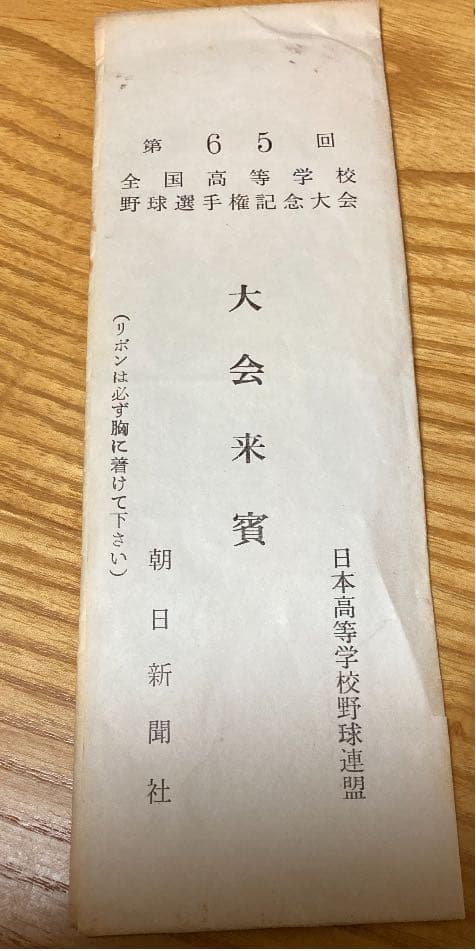 第65回
全国高等学校
野球選手権記念大会
大会来賓
日本高等学校野球連盟
朝日新聞社
(リボンは必ず胸に着けて下さい)